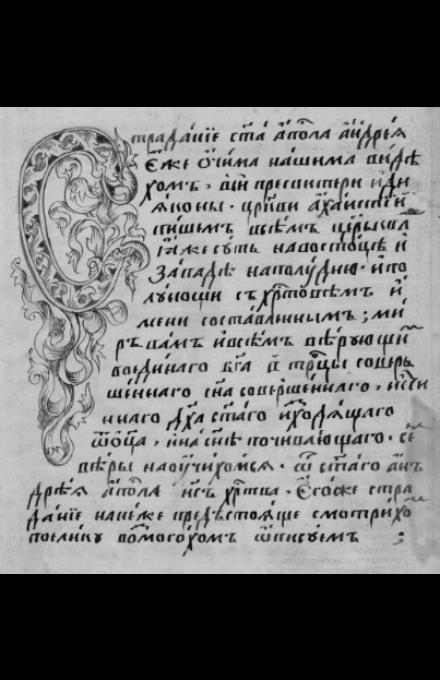 Страданїе ст҃а а҆пⷭ҇ла а҆нꙣрея
Еже ѻчима нашима видѣ
хомъ, вси пресвитери и҆ ди
ꙗкони, цр҃кви а҆хаистїи
пишемъ всѣмъ церьква
ꙗже суть на востоцѣ и҆
Западѣ на полудню, и҆ по
луноши съ хрⷭ҇товѣмъ и҆
мени составленнымъ; ми
ръ вамъ и҆ всѣмъ вѣрующи
воединаго бг҃а в трⷪ҇цы соверь
шеннаго, сн҃а совершеннаго, исти
ннаго дх҃а ст҃аго и҆сходящаго
ѿ ѻц҃а, и҆ на сн҃ѣ почивающаго, се
вѣры наоучихомъся, ѿ ст҃аго а҆н
дрѣꙗ а҆пⷭ҇ла і҆ис҃ъ хрⷭ҇това, Егоже стра
данїе на неже предъстояще смотрихо
поелику возⷨмогохомъ ѿписуемъ ;